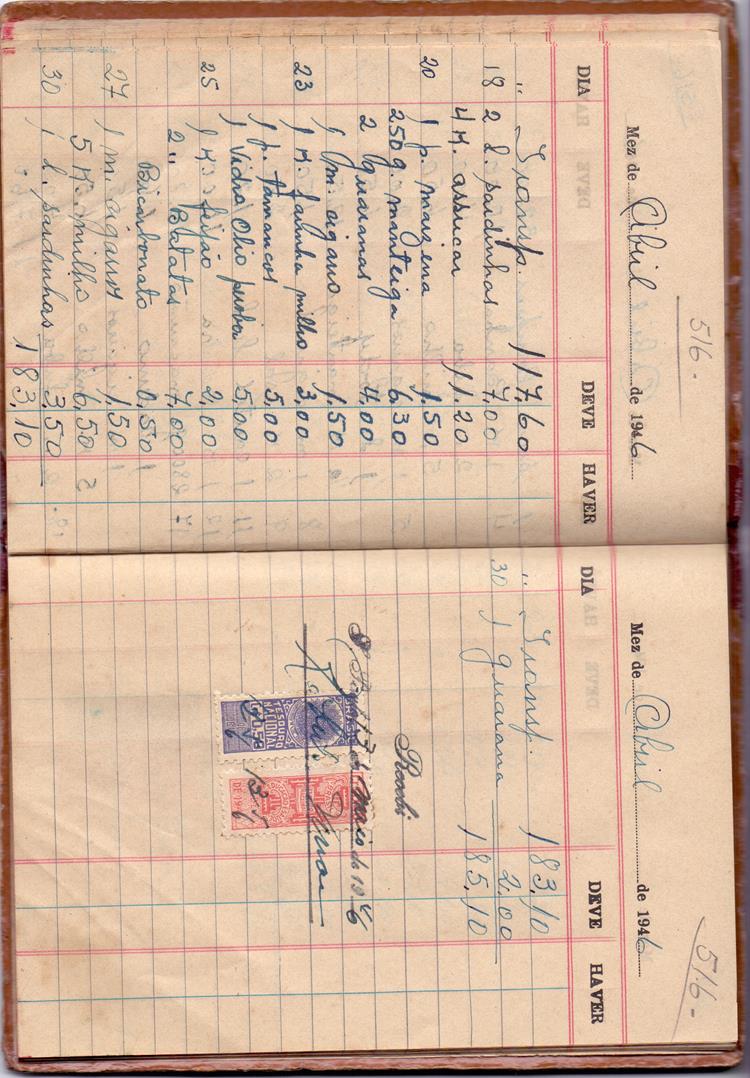 516-
Mez de Abril de 1946
DIA DEVE HAVER
" Transp. 117,60
18 2 l. sardinhas 7,00
4 K. assucar 11.20
20 1 p. maizena 1.50
250 g. manteiga 6.30
2 guaranas 4,00
1 m. cigarro 1,50
23 1 K. farinha milho 3,00
1 p. tamancos 5,00
1 Vidro Olio 5,00
25 1 K. feijão 2,00
2 " Batatas 7,00
Bicarbonato 0,50
27 1 m. cigarros 1,50
5 K. milho 6,50
30 1 l. sardinhas 3,50
183,10
516-
Mez de Abril de 1946
DIA DEVE HAVER
" Transp. 183,10
30 1 guarana 2,00
185,10
Recebi
S. Paulo, 17 de Maio de 1946
TESOURO
NACIONAL